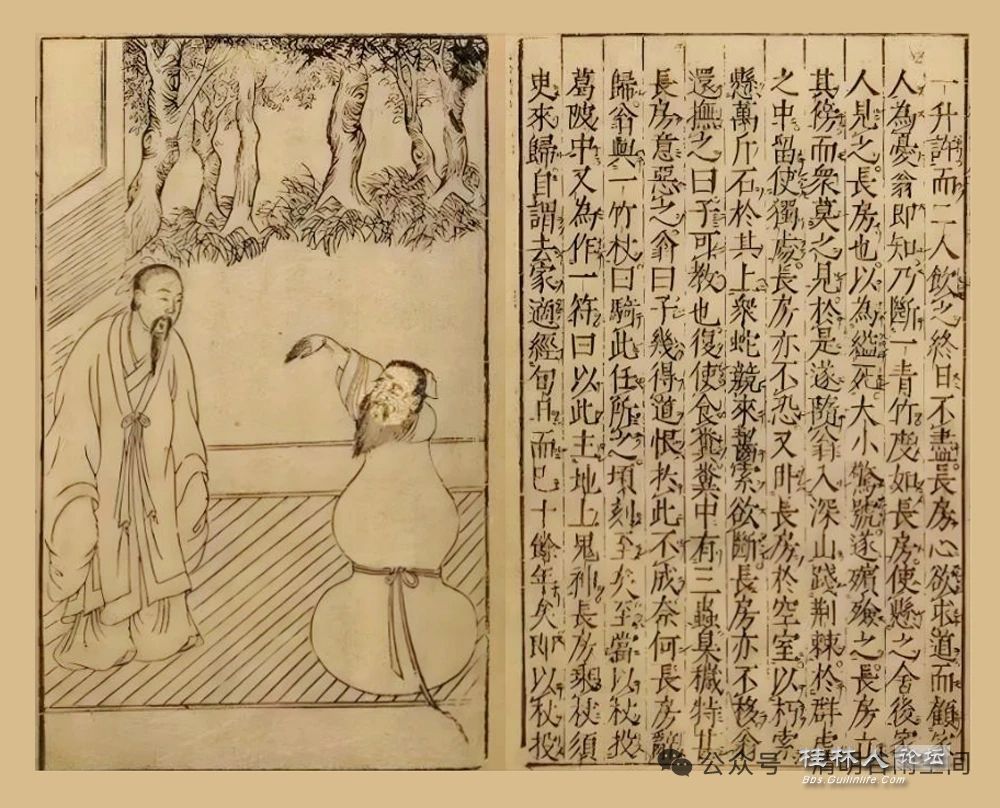 一升許而二人飲之終日不盡。長房心欲求道而顧家
人為憂翁即知乃斷一青竹度如長房使懸之舍後家
人見之長房也以為縊死大小驚號遂殯殮之長房立
其傍而衆莫之見於是遂隨翁入深山踐荆棘於群虎
之中留使獨處長房亦不恐又卧長房於空室以朽索
懸萬斤石於其上衆蛇競來齧索欲斷長房亦不移翁
還撫之曰子可教也復使食糞糞中有三蟲臭穢特甚
長房意惡之翁曰子幾得道恨於此不成奈何長房辭
歸翁與一竹杖曰騎此任所之頃刻至矣至當以杖投
葛陂中又為作一符曰以此主地上鬼神長房乘杖須
臾來歸自謂去家適經旬日而已十餘年矣即以杖投
公众号
空间
桂林人论坛
Bbs.Guilinlife.Com